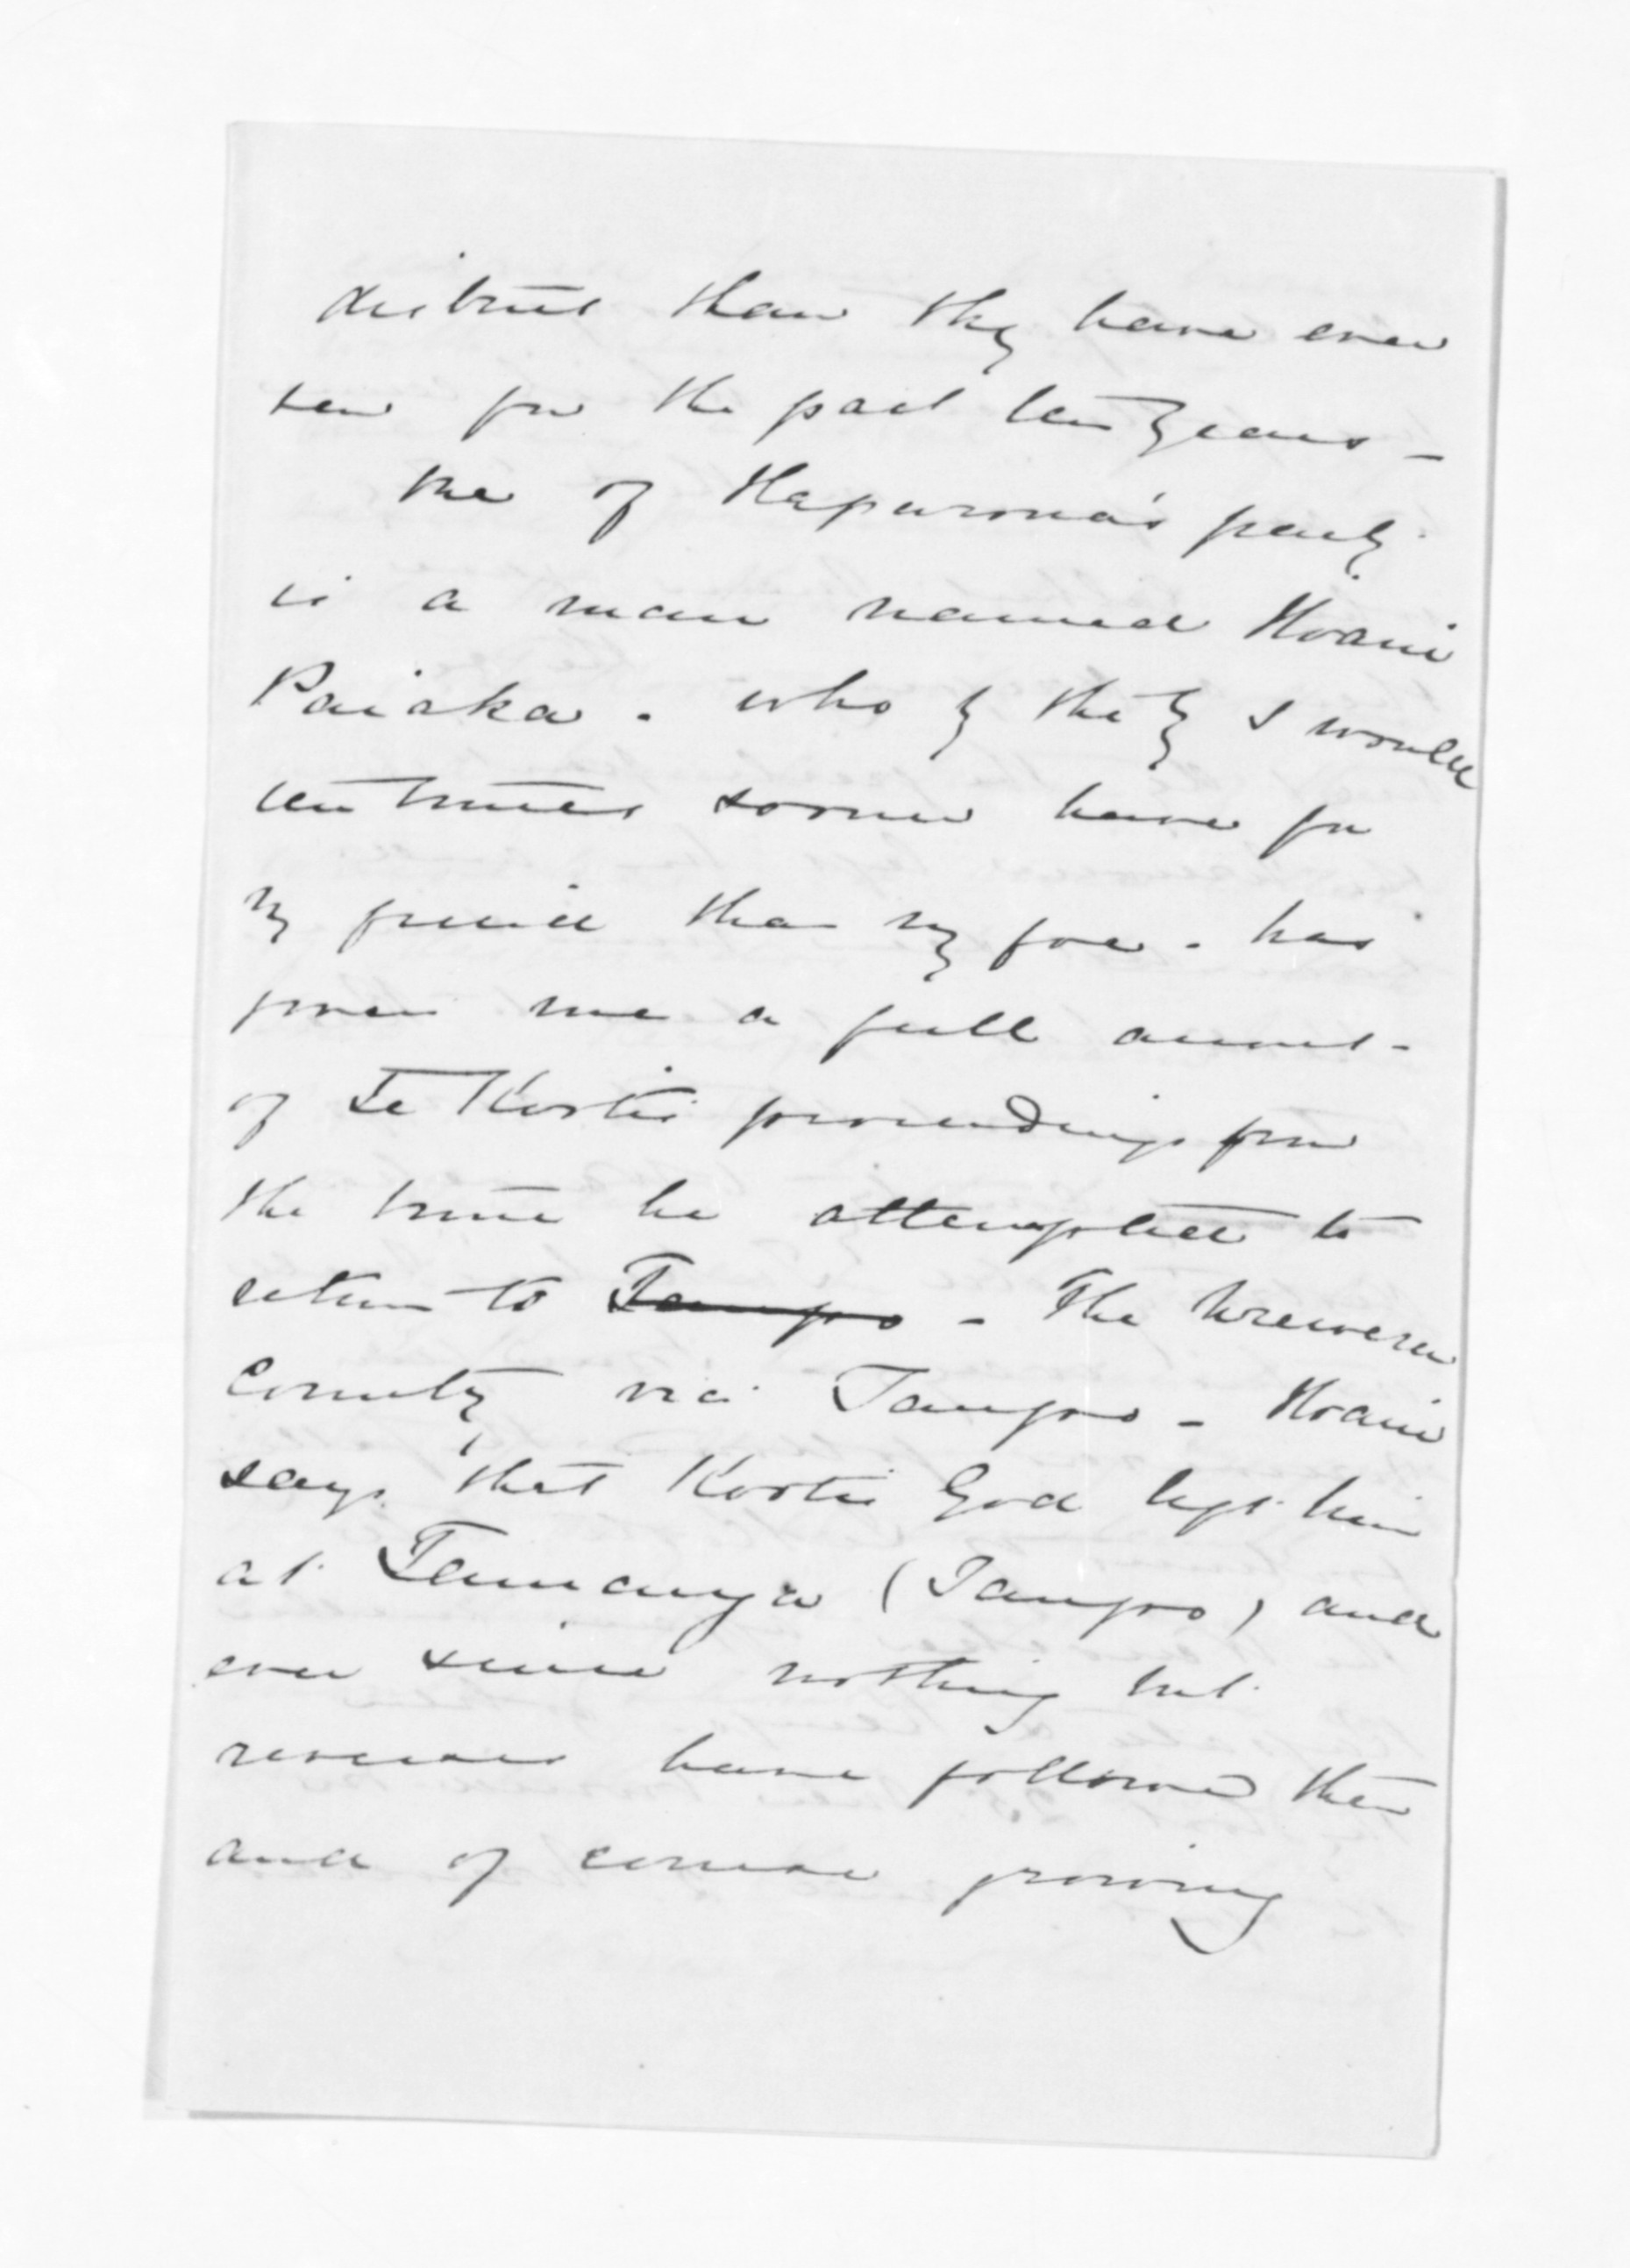 district than they have ever
been for the past ten years -
One of Hapurona's party
is a man named Hoani
Paiaka. who by the by I would
ten times sooner have for
my friend than my foe. has
given me a full account
of Te Kooti's proceedings from
the time he attempted to
return to Taupo - The Urewera
Country via Taupo - Hoani
says that Kooti's God left him
at Tauranga (Taupo) and
ever since nothing but
reverses have followed them
and of course growing